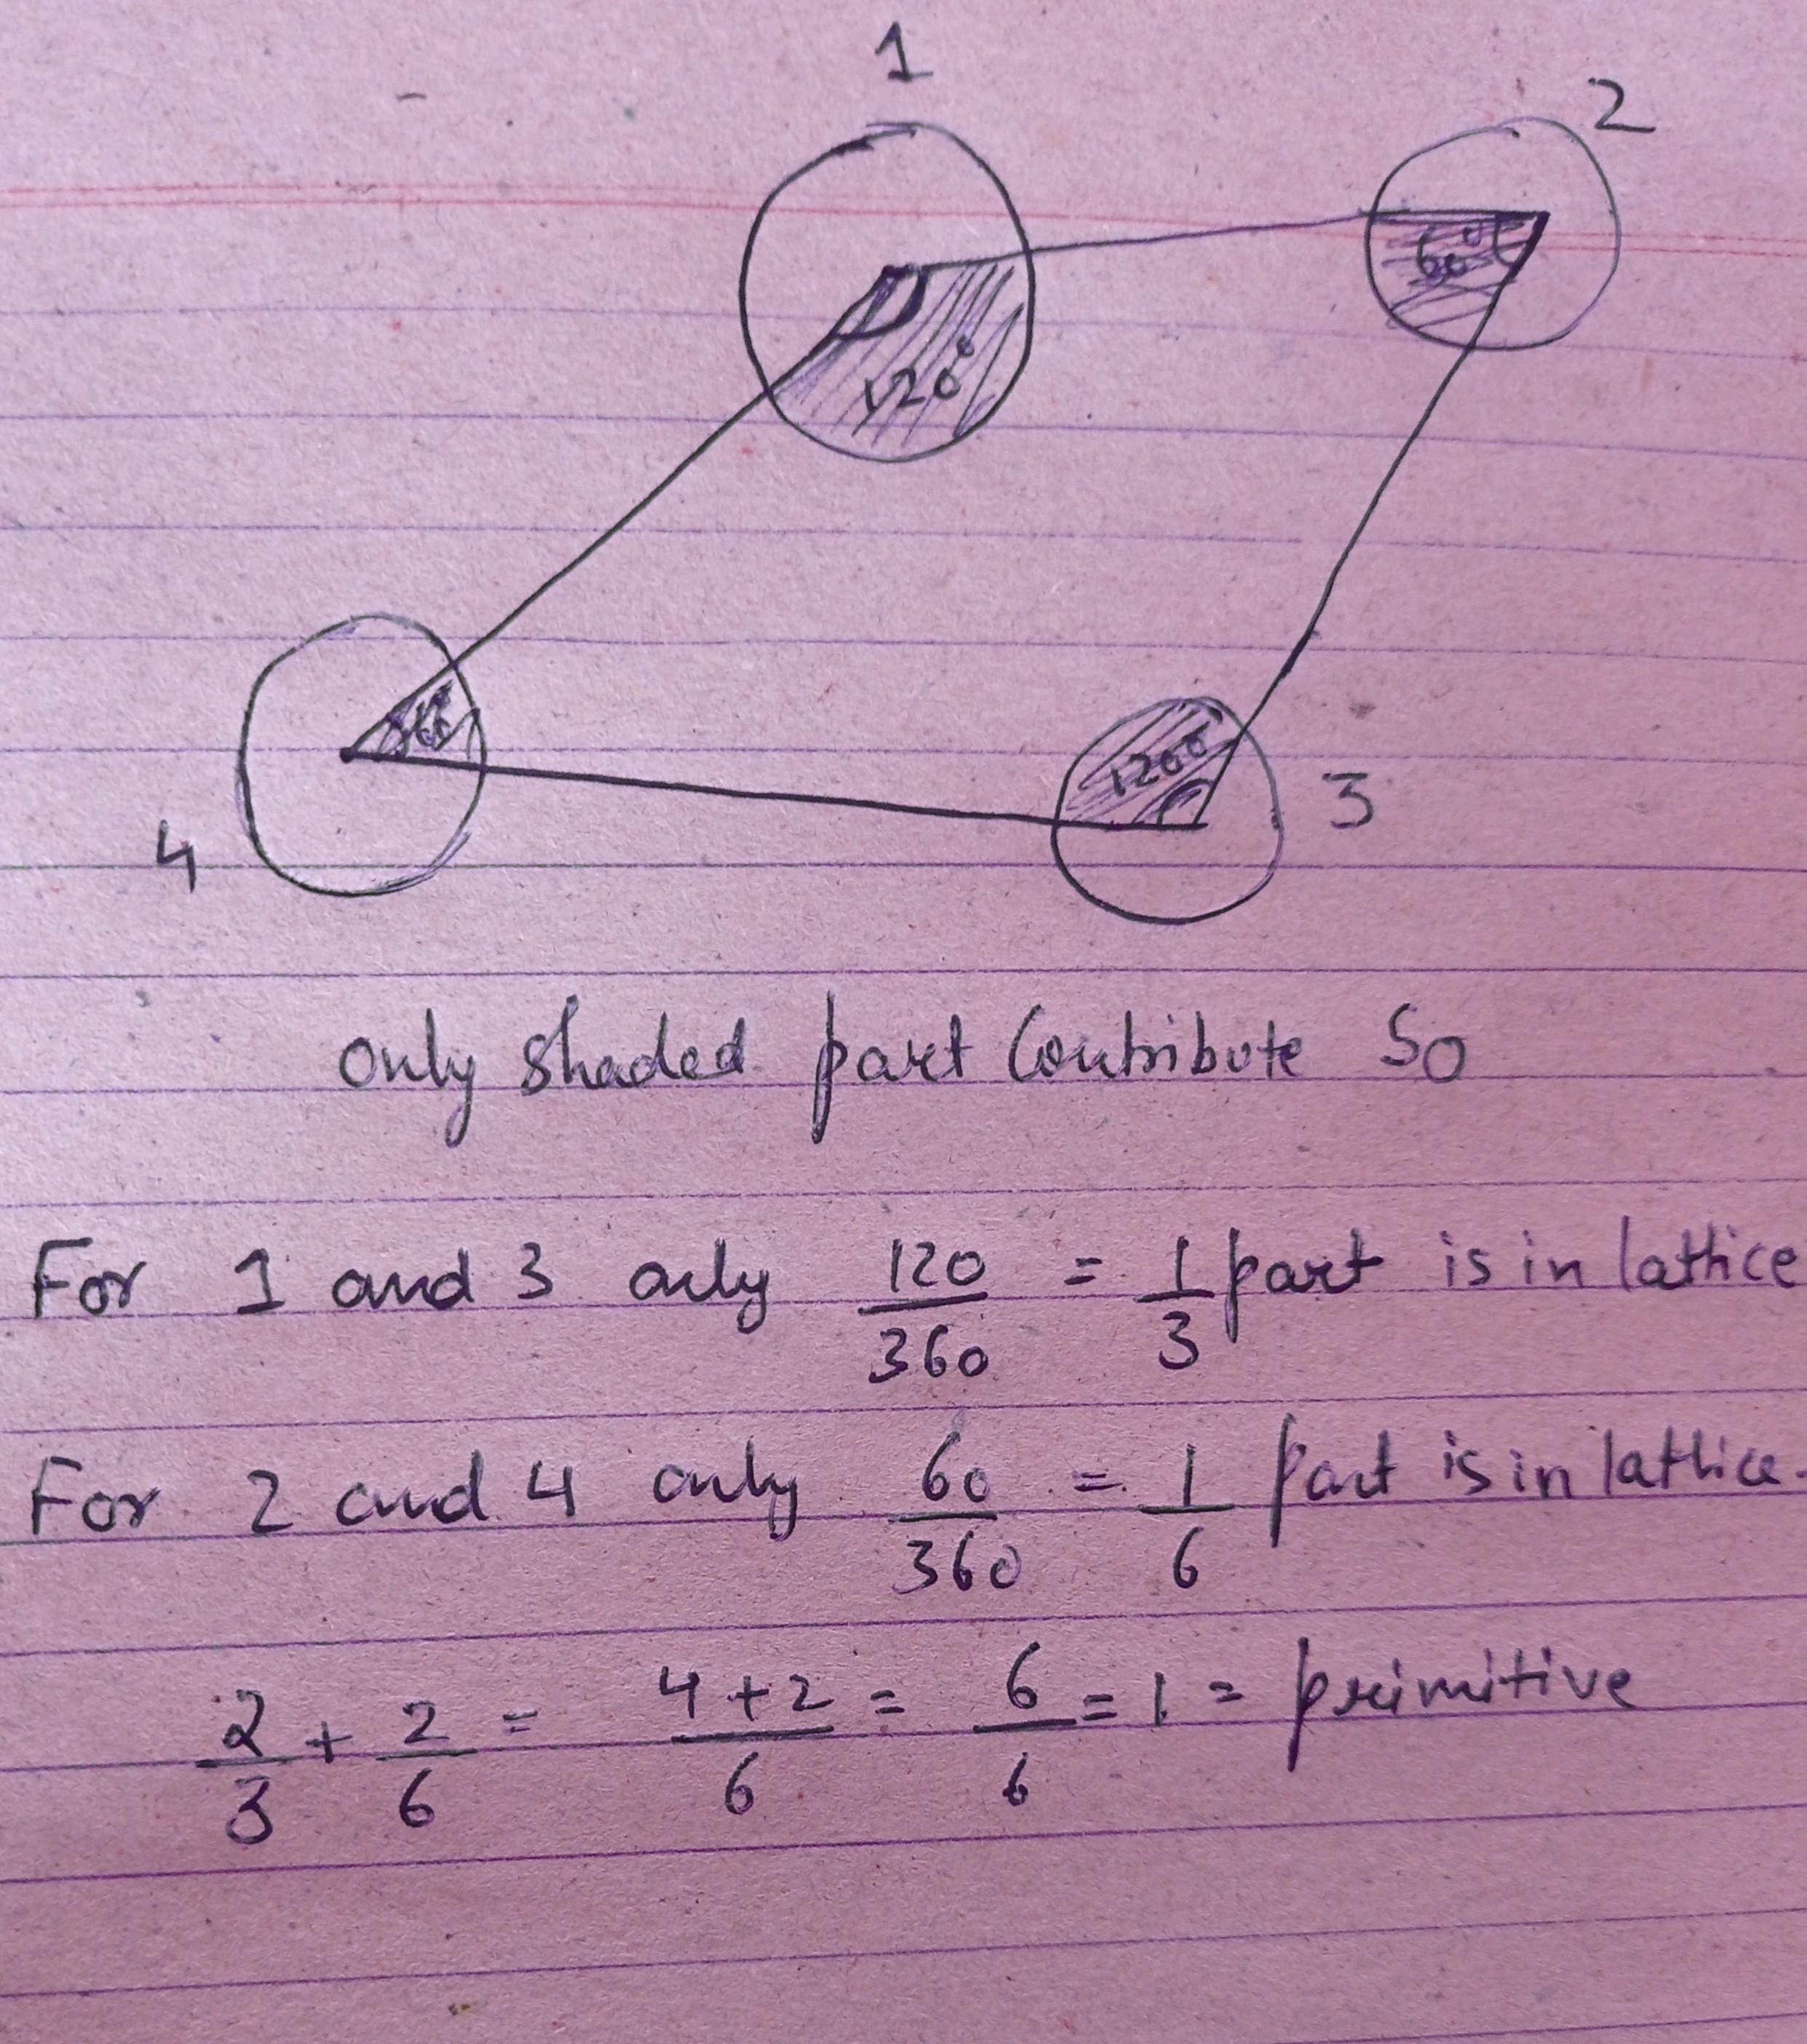 1
2
60°
120°
60°
120°
3
4
only shaded part Contribute So
For 1 and 3 only 120/360 = 1/3 part is in lattice
For 2 and 4 only 60/360 = 1/6 part is in lattice.
2/3 + 2/6 = 4+2/6 = 6/6 = 1 = primitive